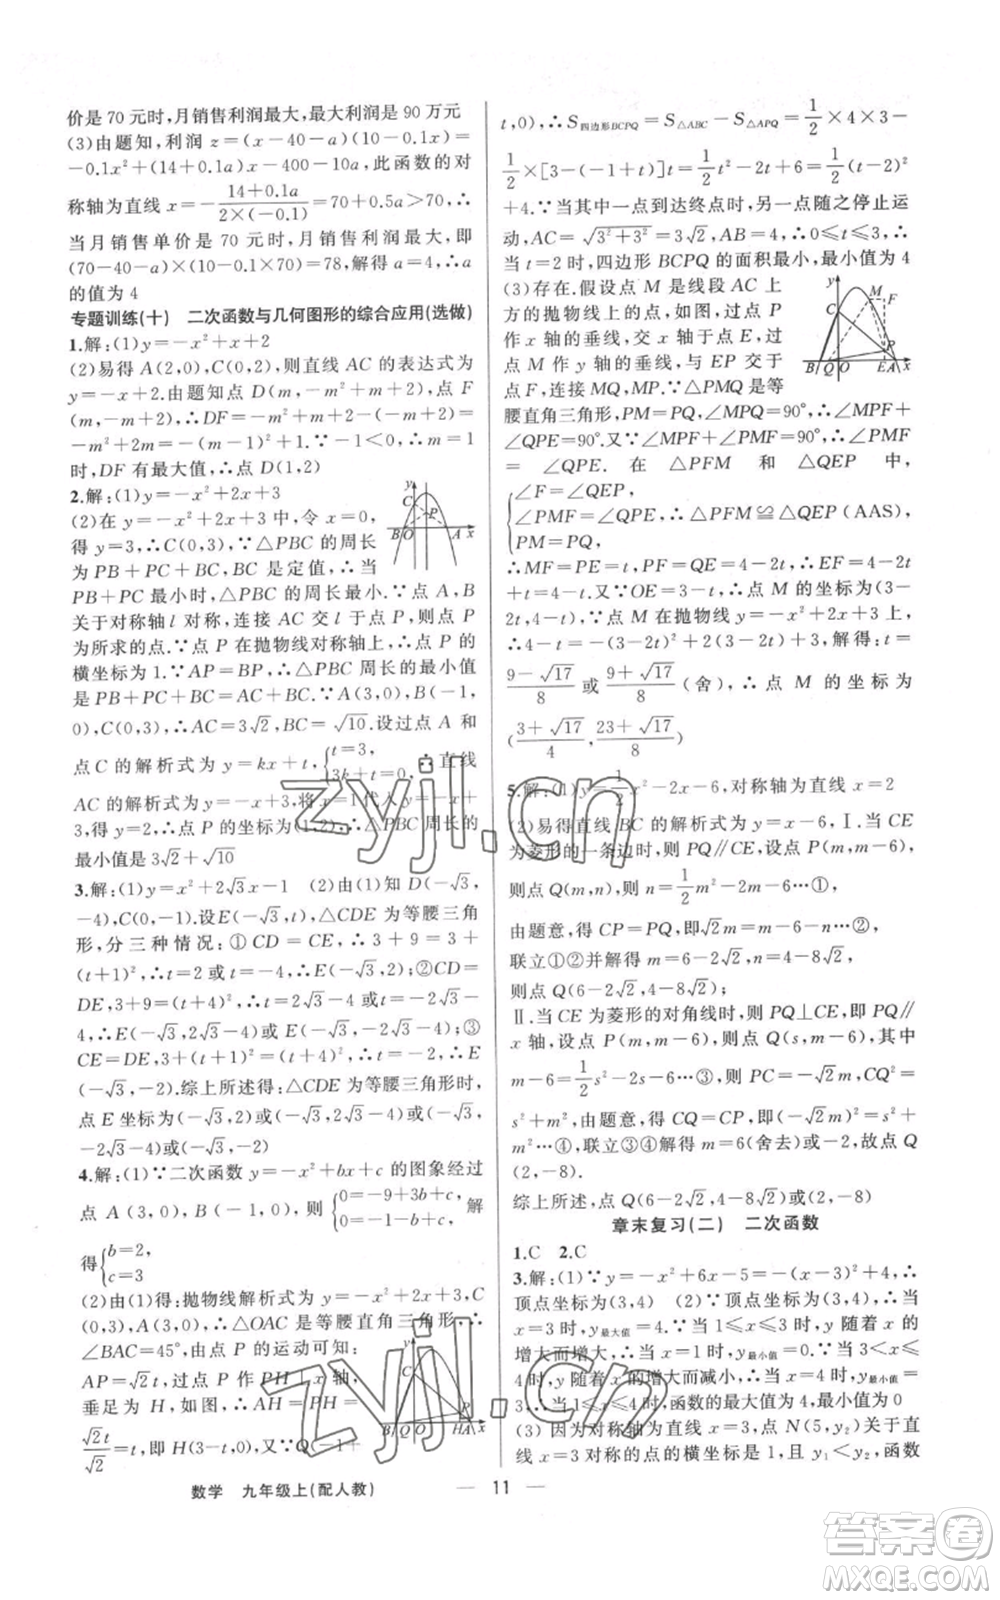 价是 70 元时,月销售利润最大,最大利润是 90 万元
(3)由题知,利润 z=(x-40-a)(10-0.1x)=
-0.1x²+(14+0.1a)x-400-10a,此函数的对
称轴为直线 x=-\frac{14+0.1a}{2×(-0.1)}=70+0.5a>70,∴
当月销售单价是 70 元时,月销售利润最大,即
(70-40-a)×(10-0.1×70)=78,解得 a=4,∴a
的值为 4
专题训练(十) 二次函数与几何图形的综合应用(选做)
1.解:(1)y=-x²+x+2
(2)易得 A(2,0),C(0,2),则直线 AC 的表达式为
y=-x+2.由题知点 D(m,-m²+m+2),点 F
(m,-m+2),∴DF=-m²+m+2-(-m+2)=
-m²+2m=-(m-1)²+1.∵-1<0,∴m=1
时,DF 有最大值,∴点 D(1,2)
2.解:(1)y=-x²+2x+3
(2)在 y=-x²+2x+3 中,令 x=0,
得 y=3,∴C(0,3),∵△PBC 的周长
为 PB+PC+BC,BC 是定值,∴当
PB+PC 最小时,△PBC 的周长最小.∵点 A,B
关于对称轴 l 对称,连接 AC 交 l 于点 P,则点 P
为所求的点.∵点 P 在抛物线对称轴上,∴点 P 的
横坐标为 1.∵AP=BP,∴△PBC 周长的最小值
是 PB+PC+BC=AC+BC.∵A(3,0),B(-1,
0),C(0,3),∴AC=3√2,BC=√10.设过点 A 和
点C 的解析式为 y=kx+t,{t=3, 3k+t=0, ∴直线
AC 的解析式为 y=-x+3,将 x=1 代入 y=-x+
3,得 y=2,∴点 P 的坐标为(1,2),△PBC 周长的
最小值是 3√2+√10
3.解:(1)y=x²+2√3x-1 (2)由(1)知 D(-√3,
-4),C(0,-1).设E(-√3,t),△CDE 为等腰三角
形,分三种情况:①CD=CE,∴3+9=3+
(t+1)²,∴t=2 或 t=-4(舍去);②CD=
DE,3+9=(t+4)²,∴t=2√3-4 或 t=-2√3-
4,∴E(-√3,2√3-4)或E(-√3,-2√3-4);③
CE=DE,3+(t+1)²=(t+4)²,t=-2,∴E
(-√3,-2).综上所述得:△CDE 为等腰三角形时,
点 E 坐标为(-√3,2)或(-√3,2√3-4)或(-√3,
-2√3-4)或(-√3,-2)
4.解:(1)∵二次函数 y=-x²+bx+c 的图象经过
点 A(3,0),B(-1,0),则 {0=-9+3b+c, 0=-1-b+c, 解
得{b=2, c=3
(2)由(1)得:抛物线解析式为 y=-x²+2x+3,C
(0,3),A(3,0),∴△OAC 是等腰直角三角形,∴
∠BAC=45°,由点 P 的运动可知:
AP=√2t,过点 P 作 PH⊥x 轴,
垂足为 H,如图,∴AH=PH=
\frac{√2t}{√2}=t,即 H(3-t,0),又∵Q(-1+
t,0),∴S四边形BCPQ=S△ABC-S△APQ=\frac{1}{2}×4×3-
\frac{1}{2}×[3-(-1+t)]t=\frac{1}{2}t²-2t+6=\frac{1}{2}(t-2)²
+4.∵当其中一点到达终点时,另一点随之停止运
动,AC=√(3²+3²)=3√2,AB=4,∴0≤t≤3,∴
当 t=2 时,四边形 BCPQ 的面积最小,最小值为 4
(3)存在.假设点 M 是线段 AC 上
方的抛物线上的点,如图,过点 P
作 x 轴的垂线,交 x 轴于点 E,过
点 M 作 y 轴的垂线,与 EP 交于
点 F,连接 MQ,MP.∵△PMQ 是等
腰直角三角形,PM=PQ,∠MPQ=90°,∴∠MPF+
∠QPE=90°.又∵∠MPF+∠PMF=90°,∴∠PMF
=∠QPE. 在 △PFM 和 △QEP 中,
{∠F=∠QEP,
∠PMF=∠QPE,∴△PFM≌△QEP(AAS),
PM=PQ,
∴MF=PE=t,PF=QE=4-2t,∴EF=4-2t
+t=4-t,∵OE=3-t,∴点 M 的坐标为(3-
2t,4-t),∵点 M 在抛物线 y=-x²+2x+3 上,
∴4-t=-(3-2t)²+2(3-2t)+3,解得:t=
\frac{9-√17}{8} 或 \frac{9+√17}{8} (舍),∴点 M 的坐标为
(\frac{3+√17}{4},\frac{23+√17}{8})
5.解:(1)y=\frac{1}{2}x²-2x-6,对称轴为直线 x=2
(2)易得直线 BC 的解析式为 y=x-6,Ⅰ.当 CE
为菱形的一条边时,则 PQ∥CE,设点 P(m,m-6),
则点 Q(m,n),则 n=\frac{1}{2}m²-2m-6…①,
由题意得,CP=PQ,即√2m=m-6-n…②,
联立①②并解得 m=6-2√2,n=4-8√2,
则点 Q(6-2√2,4-8√2);
Ⅱ.当 CE 为菱形的对角线时,则 PQ⊥CE,即PQ∥
x 轴,设点 P(m,m-6),则点 Q(s,m-6),
m-6=\frac{1}{2}s²-2s-6…③,则 PC=-√2m,CQ²=
s²+m²,由题意得,CQ=CP,即(-√2m)²=s²+
m²…④,联立③④解得 m=6(舍去)或-2,故点 Q
(2,-8).
综上所述,点 Q(6-2√2,4-8√2)或(2,-8)
章末复习(二) 二次函数
1.C 2.C
3.解:(1)∵y=-x²+6x-5=-(x-3)²+4,∴
顶点坐标为(3,4) (2)∵顶点坐标为(3,4),∴当
x=3 时,y最大值=4.∵当 1≤x≤3 时,y 随着 x 的
增大而增大,∴当 x=1 时,y最小值=0.∵当 3<x≤4
时,y 随着 x 的增大而减小,∴当 x=4 时,y最小值=
3.∴当 1≤x≤4 时,函数的最大值为 4,最小值为 0
(3) 因为对称轴为直线 x=3,点 N(5,y₂)关于直
线 x=3 对称的点的横坐标是 1,y₁<y₂,函数
数学 九年级上(配人教)
— 11 —
zyjl.cn
zyjl.cn
答案卷
MXQE.COM